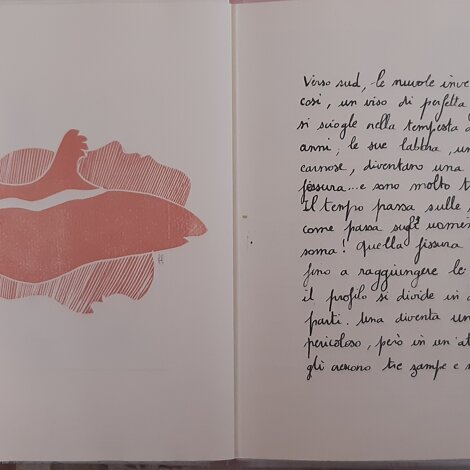 Verso sud, le nuvole inve
così, un viso di perfetta
si scioglie nella tempesta d
anni; le sue labbra, un
carnose, diventano una
fessura...e sono molto t
Il tempo passa sulle
come passa sugli uomini
soma! Quella fissura
fino a raggiungere le
il profilo si divide in d
parti. Una diventa un
pericoloso, però in un'at
gli crescono tre zampe e s